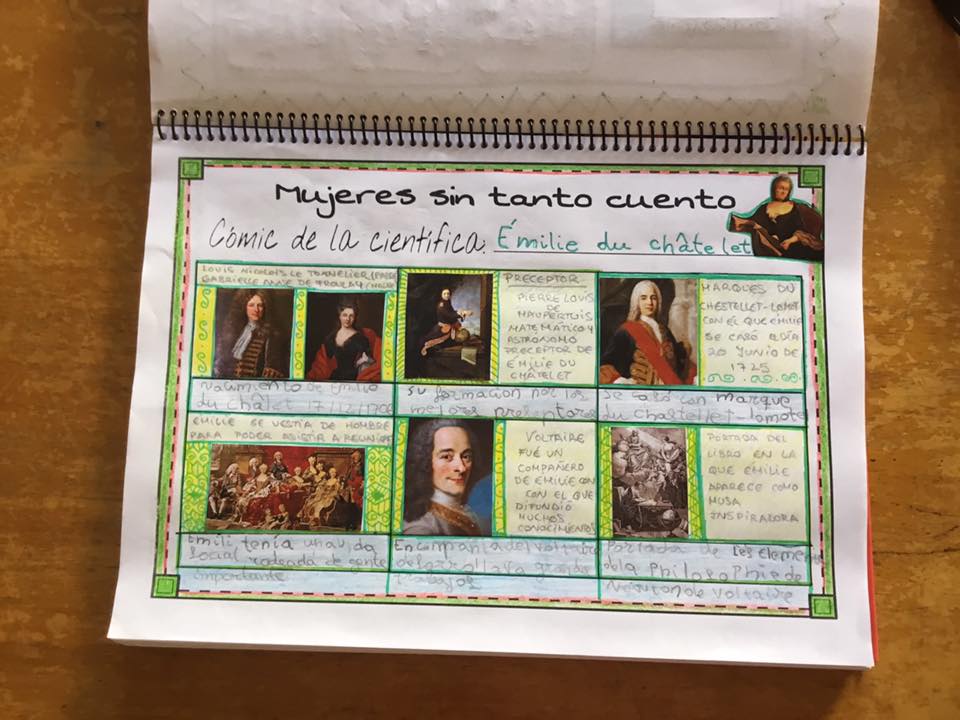 Mujeres sin tanto cuento
Cómic de la científica: Émilie du châtelet
LOUIS NICOLÁIS LE TONNELIER (PADRE
GABRIELLE ANNE DE FROULAY (MADRE
nacimiento de Emilio
du châlet 17/12/1706
PRECEPTOR
PIERRE LOUIS
DE
MAUPERTUIS
MATEMÁTICO Y
ASTRONOMO
PRECEPTOR DE
EMILIE DU
CHÂTELET
su formacion por los
mejores preseptores
MARQUES DU
CHESTELLET-LOMOT
CON EL QUE EMILIE
SE CASÓ EL DÍA
20 JUNIO DE
1725
se casó con marque
du chastellet-lomote
EMILIE SE VESTÍA DE HOMBRE
PARA PODER ASISTIR A REUNIONES
Emili tenía una vida
social, rodeada de gente
importante
VOLTAIRE
FUÉ UN
COMPAÑERO
DE EMILIE CON
CON EL QUE
DIFUNDIÓ
MUCHOS
CONOCIMIENTOS
En compañía del voltaire
desarrollava grande
trabajos
PORTADA DEL
LIBRO EN LA
QUE EMILIE
APARECE COMO
MUSA
INSPIRADORA
Portada de les elemente
de la philosophie de
Newton de voltaire